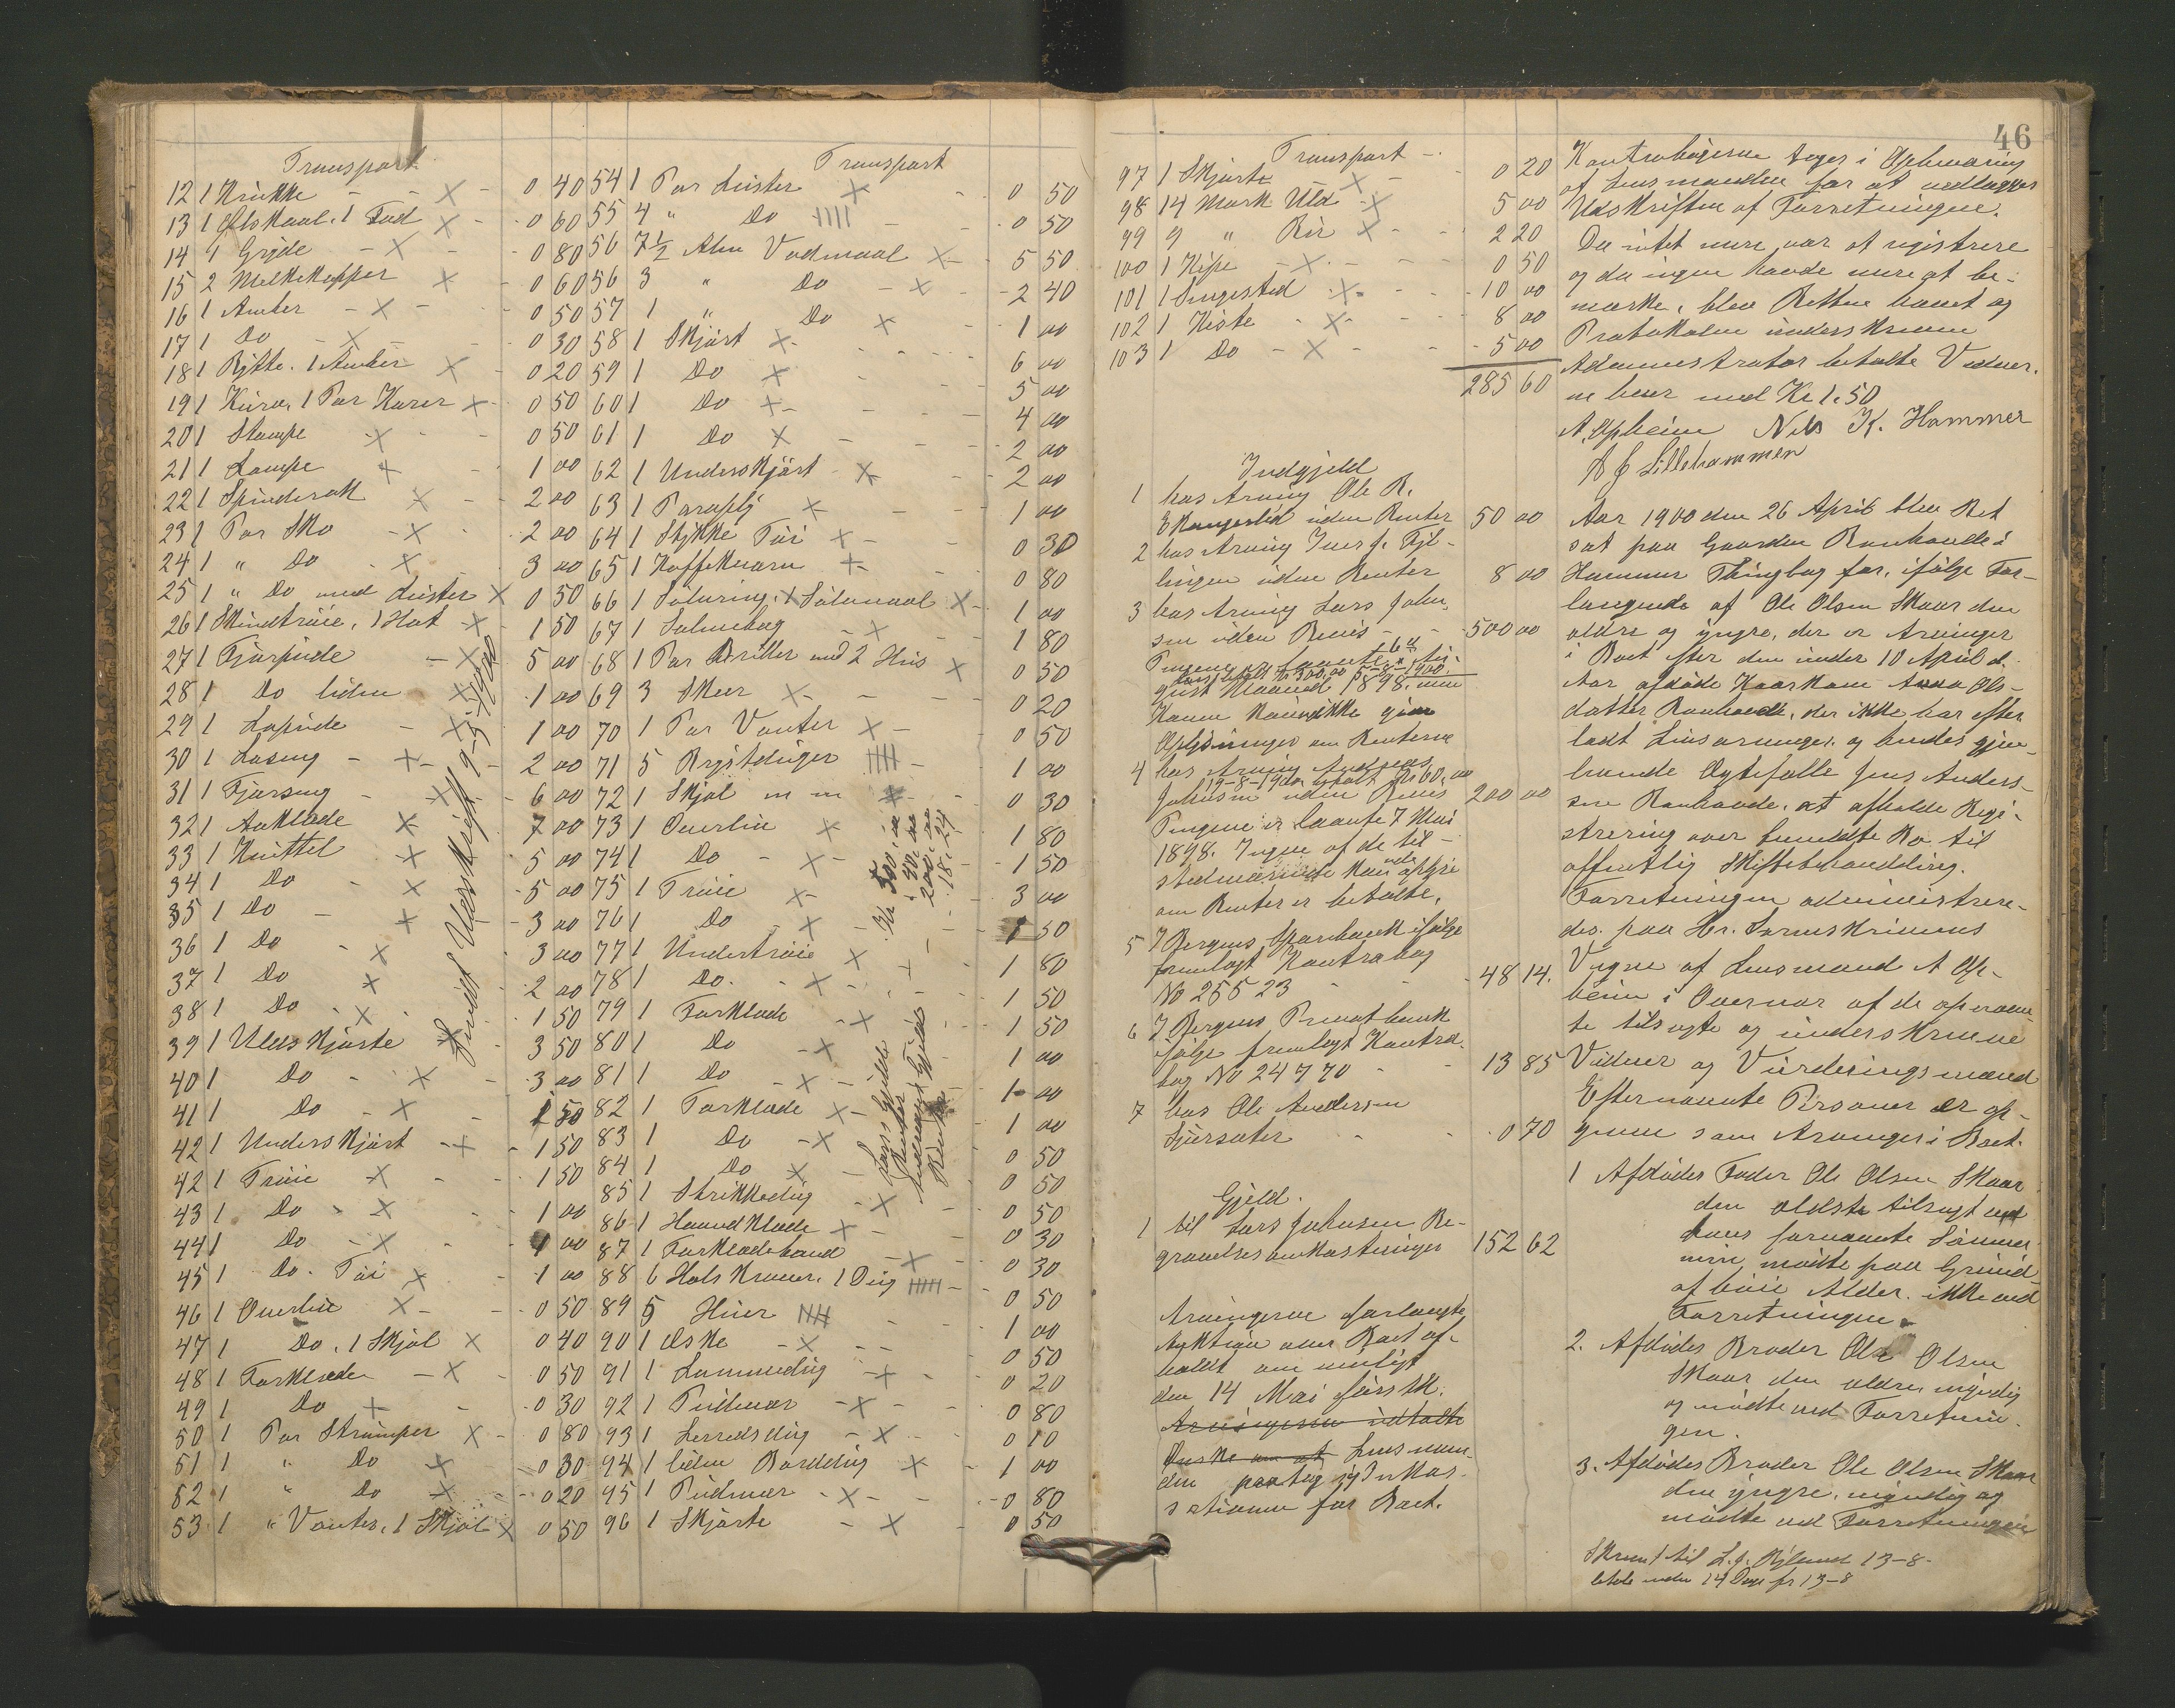 Transport
12 1 Krukke - - 0 40
13 1 Ølskaal. 1 Fad - 0 60
14 1 Gryde - - 0 80
15 2 Melkekopper - 0 60
16 1 Amber - - 0 50
17 1 Do - - 0 30
18 1 Bytte. 1 Amber - 0 20
19 1 Kurv. 1 Par Karer - 0 50
20 1 Stampe - 0 50
21 1 Lampe - 1 00
22 1 Spinderok - 2 00
23 1 Par Sko - 2 00
24 1 " Do - 3 00
25 1 " Do med Luster 0 50
26 1 Skindtröie, 1 Hat - 1 50
27 1 Fjærpude - 5 00
28 1 Do liden 1 00
29 1 Lapude - 1 00
30 1 Laseng - 2 00
31 1 Fjærseng - 6 00
32 1 Aaklæde 7 00
33 1 Knittel 5 00
34 1 Do - 5 00
35 1 Do - 3 00
36 1 Do - 3 00
37 1 Do 2 00
38 1 Do - 1 50
39 1 Uldskjørte 3 50
40 1 Do - 3 00
41 1 Do - 1 50
42 1 Underskjørt - 1 50
42 1 Tröie - 1 50
43 1 Do - 1 00
44 1 Do - 1 00
45 1 Do. Töi 1 00
46 1 Overliv - 0 50
47 1 Do. 1 Skjol 0 40
48 1 Forklæde - 0 50
49 1 Do - 0 30
50 1 Par Strømper 0 80
51 1 " Do 0 30
52 1 " Do 0 20
53 1 " Vanter, 1 Skjöl 0 50
Sendt Udskrift 9-5-1900
Transport
54 1 Par Luster - 0 50
55 4 " Do - 0 50
56 7½ Alen Vadmaal - 5 50
56 3 " Do - 2 40
57 1 " Do - 1 00
58 1 Skjört - 6 00
59 1 Do - 5 00
60 1 Do - 4 00
61 1 Do - 2 00
62 1 Underskjört - 2 00
63 1 Paraply - 1 00
64 1 Stykke Töi - 0 30
65 1 Kaffekværn - 0 80
66 1 Sölvring, 1 Sölvnaal - 1 00
67 1 Salmebog - 1 80
68 1 Par Briller med 2 Hus 0 50
69 3 Skeer - 0 20
70 1 Par Vanter - 0 50
71 5 Brystduger - 1 00
72 1 Skjol m m - 0 30
73 1 Overliv 1 80
74 1 Do - 1 50
75 1 Tröie 3 00
76 1 Do - 1 50
77 1 Undertröie 1 80
78 1 Do. - 1 50
79 1 Forklæde 1 50
80 1 Do - 1 00
81 1 Do - 1 00
82 1 Forklæde - 1 00
83 1 Do - 0 50
84 1 Do - 0 50
85 1 Strikkedug - 0 50
86 1 Haandklæde - 0 30
87 1 Forklædebaand - 0 30
88 6 Halskraver. 1 Dug - 0 50
89 5 Huer - 1 00
90 1 Æske - 0 50
91 1 Lommedug - 0 20
92 1 Pudevar - 0 80
93 1 Lerredsdug - 0 10
94 1 liden Borddug - 1 00
95 1 Pudevar - 0 80
96 1 Skjörte - 0 50
Lars Gjeld Kr 500,00
Renter " 40.00
Andreas Gjeld 200,00
Renter 18.24
46
Transport -
97 1 Skjørte - 0 20
98 14 Mark Uld - 5 00
99 9 " Rir - 2 20
100 1 Kipe - 0 50
101 1 Sengested - 10 00
102 1 Kiste - 8 00
103 1 Do - 5 00
285 60
Indgjeld
1 hos Arving Ole B.
Ekangerlid uden Renter 50 00
2 hos Arving Iver J. Fyl-
lingen uden Renter 8 00
3 hos Arving Lars John-
sen uden Bevis - 500 00
Pengene er laante 6te
Lars betalt Kr 300,00 5-8-1900
gust Maaned 1898. men
Kaven kunde ikke give
Oplysninger om Renterne
4 hos Arving Andreas
19-8-1900 betalt Kr 60,00
Johnsen uden Bevis 200 00
Pengene er laante 7 Mai
1898. Ingen af de til-
stedeværende kunde oplyse
om Renter er betalte.
5 I Bergens Sparebank ifølge
fremlagt Kontrabog
No 25523 - 48 14.
6 I Bergens Privatbank
ifølge fremlagt Kontra-
bog No 24770 - 13 85
7 hos Ole Andersen
Sjursæter - 0 70
Gjeld.
1 til Lars Johnsen Be-
gravelsesomkostninger 152 62
Arvingerne forlangte
Auktion over Boet af-
holdt om muligt
den 14 Mai førstk.
Arvingerne udtalte
Ønske om at Lensman-
den paatog sig Inkas-
sationen for Boet.
Kontrabøgerne toges i Opbevaring
af Lensmanden for at vedlægges
Udskriften af Forretningen.
Da intet mere var at registrere
og da ingen havde mere at be-
mærke, blev Retten hævet og
Protokolen underskreven
Administrator betalte Vidner-
ne hver med Kr 1.50
A. Opheim Nils K. Hammer
A J Lillehammer
Aar 1900 den 26 April blev Ret
sat paa Gaarden Bauhaude i
Hammer Thinglag for, ifølge For-
langende af Ole Olsen Skaar den
ældre og yngre, der er Arvinger
i Boet efter den under 10 April d.
Aar afdøde Kaarkone Anna Ols-
datter Bauhaude, der ikke har efter
ladt Livsarvinger, og hendes gjen-
levende Ægtefælle Jens Anders-
sen Bauhaude, at afholde Regi-
strering over bemeldte Bo til
offentlig Skiftebehandling.
Forretningen administrere-
des paa Hr. Sorenskriverens
Vegne af Lensmand A Op-
heim i Overvær af de opnævn-
te tilsagte og underskrevne
Vidner og Vurderingsmænd
Efternævnte Personer er op-
givne som Arvinger i Boet.
1 Afdødes Fader Ole Olsen Skaar
den ældste tilsagt ved
hans fornævnte Sønner
men mødte paa Grund
af höie Alder ikke ved
Forretningen.
2. Afdødes Broder Ole Olsen
Skaar den ældre, myndig
og mødte ved Forretnin-
gen.
3. Afdødes Broder Ole Olsen Skaar
den yngre, myndig og
mødte ved Forretningen
Skrevet til L. J. 13-8-
betale inden 14 Dage fr 13-8